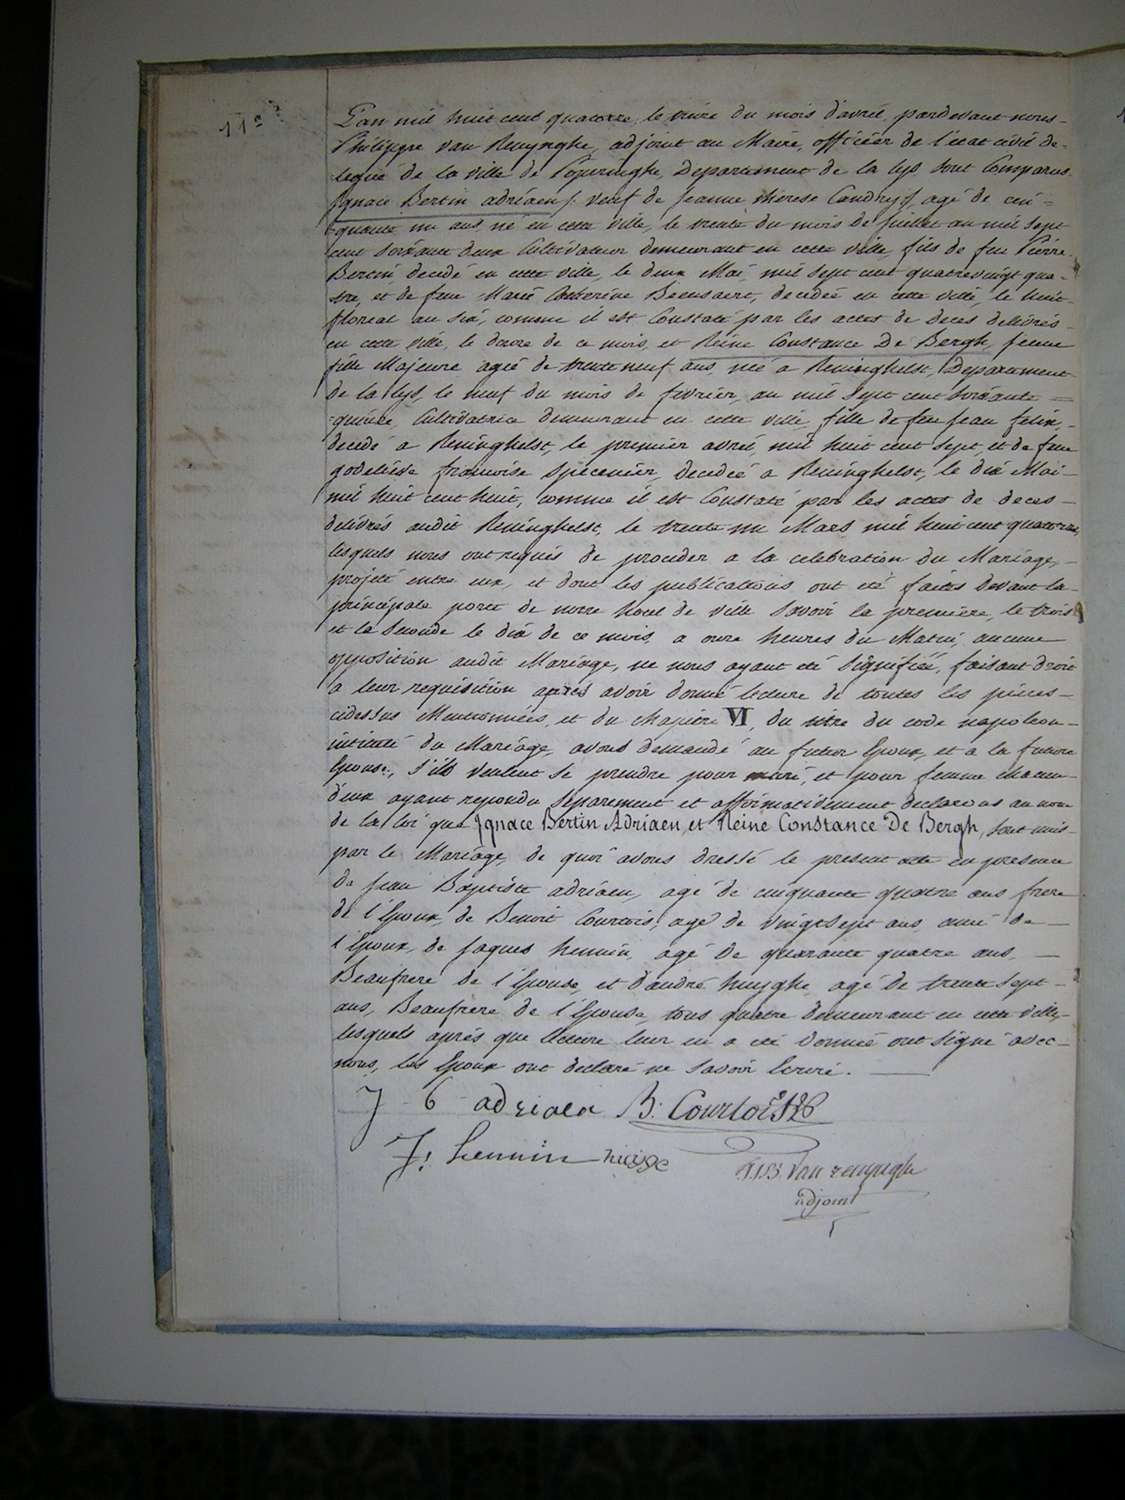 11e
L'an mil huit cent quatorze, le treize du mois d'avril, pardevant nous
Philippe van Renynghe, adjoint au Maire, officier de l'état civil de-
legué de la ville de Poperinghe, Departement de la Lys sont Comparus
Ignace Bertin adriaen (: veuf de jeanne therese Candry :) agé de cin-
quante un ans, né en cette ville, le trente du mois de juillet an mil sept
cent soixante deux Cultivateur demeurant en cette ville, fils de feu Pierre
Bertin decedé en cette ville, le deux Mai mil sept cent quatrevingt qua-
tre, et de feue Marie Catherine decedée en cette ville, le huit
floreal an six, comme il est Constaté par les actes de deces delivrés
en cette ville, le douze de ce mois, et Reine Constance De Bergh, jeune
fille Majeure agée de trente neuf ans, née à Reninghelst, Departement
de la Lys, le neuf du mois de fevrier, an mil sept cent soixante =
quinze, Cultivatrice demeurant en cette ville, fille de feu jean felix,
decedé a Reninghelst, le premier avril mil huit cent sept, et de feue
godelieve françoise decedée a Reninghelst, le dix Mai
mil huit cent huit, comme il est Constaté par les actes de deces
delivrés audit Reninghelst, le trente un Mars mil huit cent quatorze,
lesquels nous ont requis de proceder a la celebration du Mariage,
projeté entre eux, et dont les publications ont été faites devant la
principale porte de notre hotel de ville Savoir la premiere, le trois
et la Seconde le dix de ce mois, a onze heures du Matin, aucune
opposition audit Mariage, ne nous ayant été signifiée, faisant droit
a leur requisition après avoir donné lecture de toutes les pieces
cidessus Mentionnées, et du chapitre VI, du titre du code napoleon
intitulé du Mariage, avons demandé au futur Epoux, et a la future
Epouse, s'ils veulent se prendre pour mari, et pour femme chacun
d'eux ayant repondu separement et affirmativement declarons au nom
de la loi que Ignace Bertin Adriaen, et Reine Constance De Bergh, sont unis
par le Mariage, de quoi avons dressé le present acte en presence
de jean Baptiste adriaen, agé de cinquante quatre ans frere
de l'Epoux, de Benoit Courtois, agé de vingtsept ans ami de
l'Epoux, de jaques hennin, agé de quarante quatre ans,
Beaufrere de l'Epouse, et d'andré huyghe, agé de trente sept
ans, Beaufrere de l'Epouse, tous quatre demeurant en cette ville,
lesquels après que lecture leur en a été donnée ont signé avec
nous, les Epoux ont declaré ne savoir Ecrire.
J b adriaen B: Courtois
J: hennin
van renynghe
adjoint